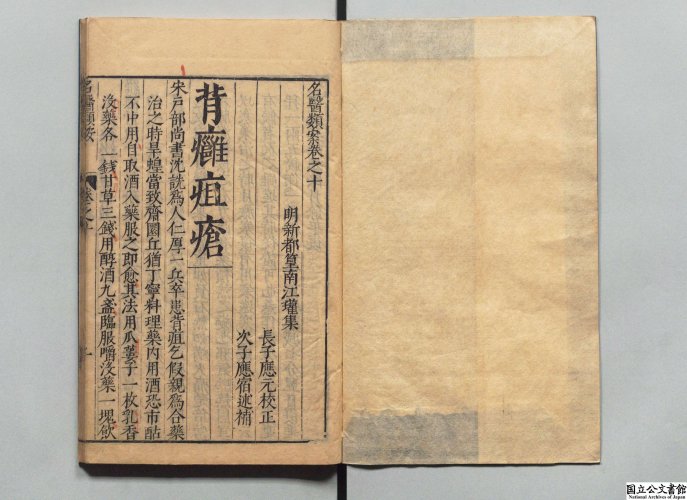 名醫類案卷之十
明新都篁南江瓘集
長子應元校正
次子應宿述補
背癰疽瘡
宋戶部尚書沈詵為人仁厚一兵卒患背疽乞假親為合藥
治之時旱蝗當致齋圜丘猶丁寧料理藥內用酒恐市酤
不中用自取酒入藥服之即愈其法用瓜蔞子一枚乳香
沒藥各一錢甘草三錢用醇酒九盞臨服嚼沒藥一塊飲
名醫類案
卷之十
一
国立公文書館
National Archives of Japan